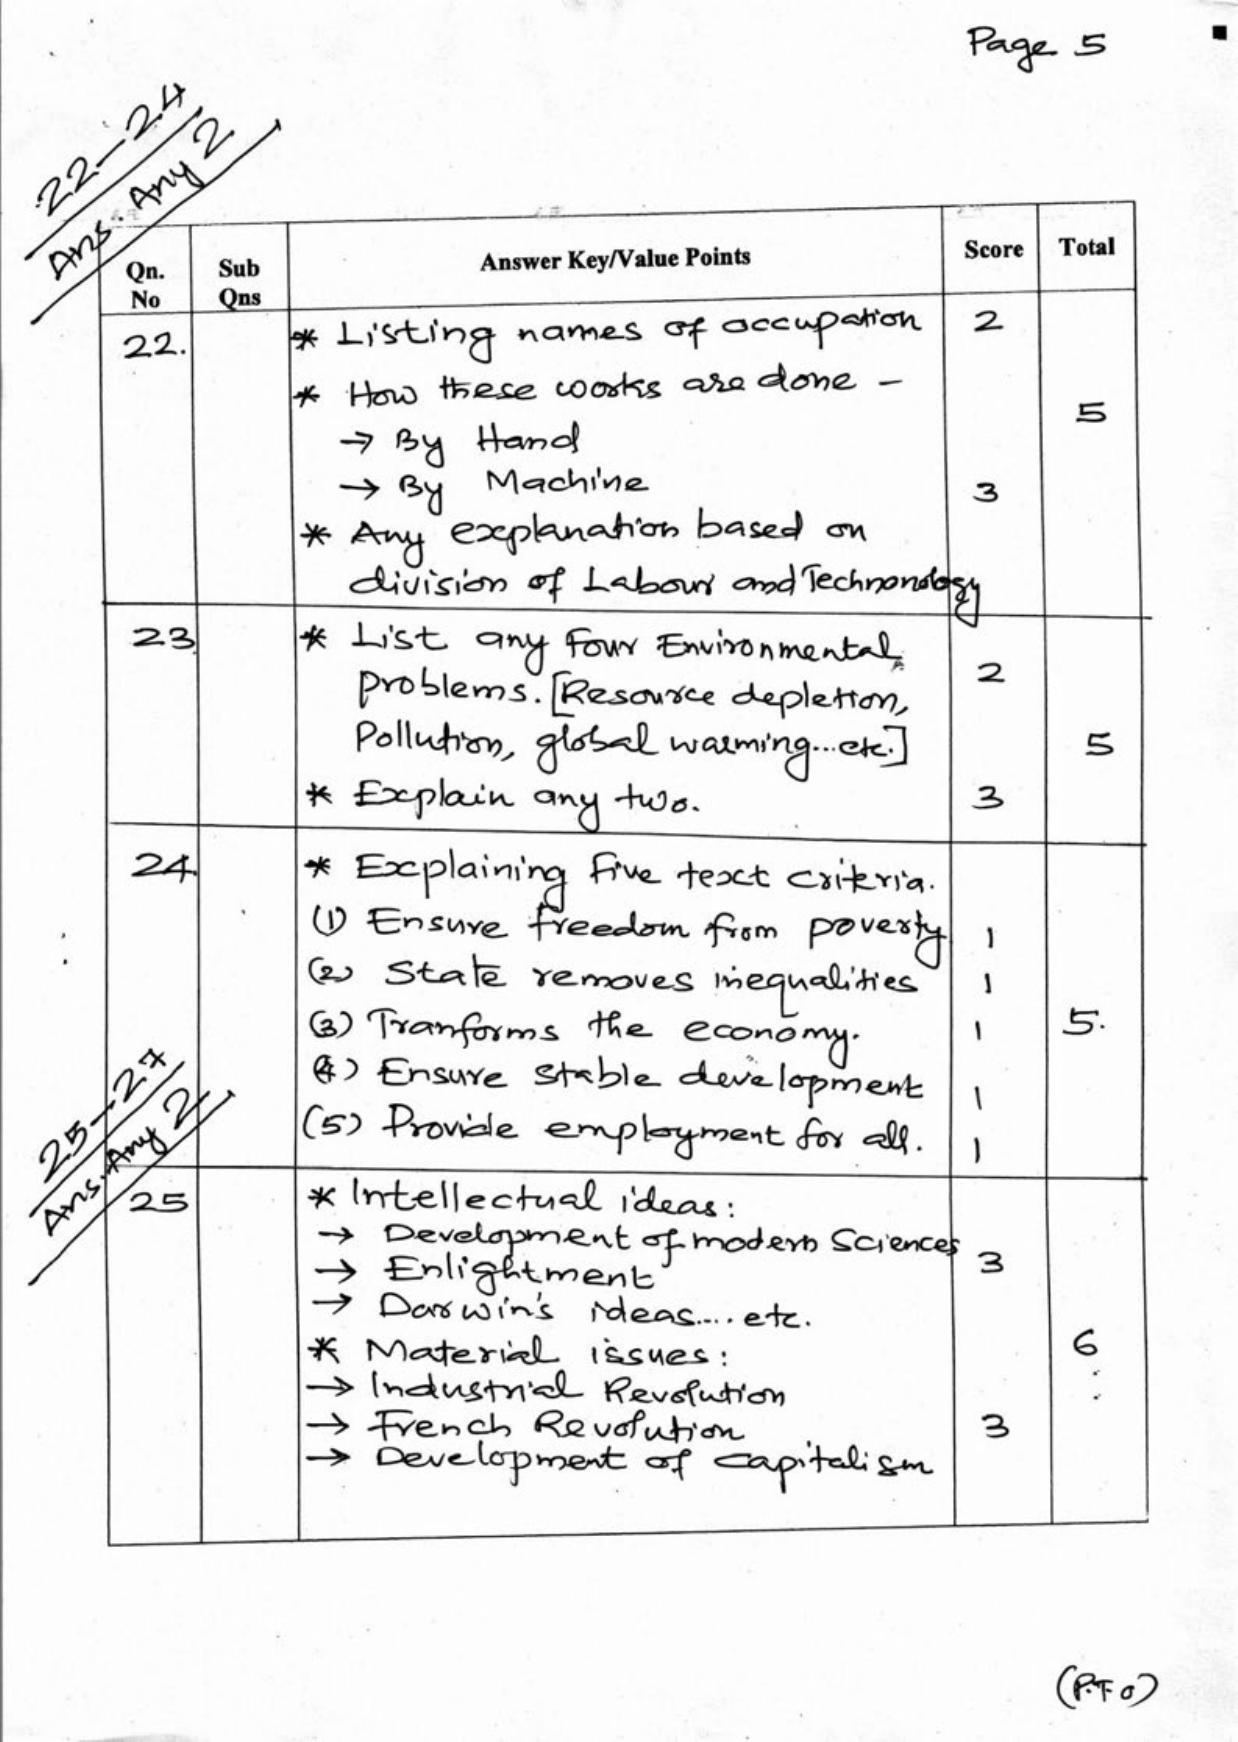 Page 5
22-24
Ans Any 2
Qn. No
Sub Qns
Answer Key/Value Points
Score
Total
22.
* Listing names of occupation
2
* How these works are done –
→ By Hand
5
→ By Machine
3
* Any explanation based on
division of Labour and Technonology
23.
* List any Four Environmental
Problems. [Resource depletion,
2
Pollution, global warming...etc.]
5
* Explain any two.
3
24.
* Explaining five text criteria.
(1) Ensure freedom from poverty
1
(2) State removes inequalities
1
(3) Tranforms the economy.
1
5.
(4) Ensure stable development
1
(5) Provide employment for all.
1
25-27
Ans. Any 2
25
* Intellectual ideas:
→ Development of modern Sciences
3
→ Enlightment
→ Darwin's ideas.... etc.
* Material issues:
6
→ Industrial Revolution
→ French Revolution
3
→ Development of capitalism
(P.T.O)